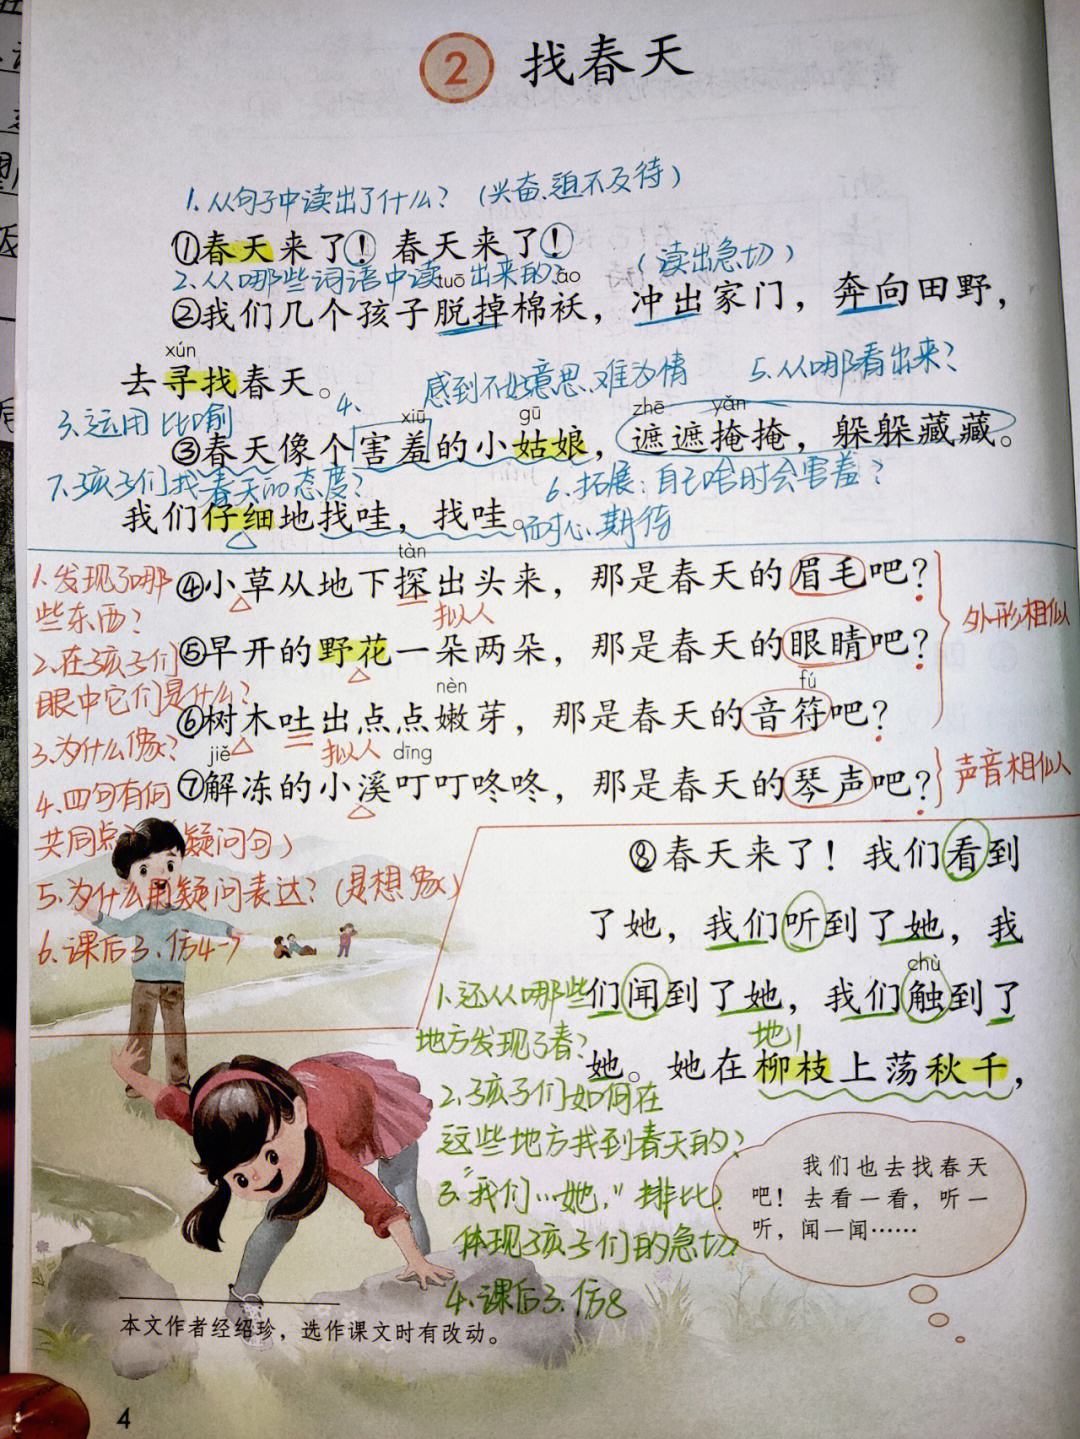 2 找春天
1.从句子中读出了什么？（兴奋、迫不及待）
①春天来了！春天来了！
2.从哪些词语中读出来的？（读出急切）
tuō ǎo
②我们几个孩子脱掉棉袄，冲出家门，奔向田野，
xún
去寻找春天。
4.感到不好意思、难为情
5.从哪看出来？
3.运用比喻
xiū gū zhē yǎn
③春天像个害羞的小姑娘，遮遮掩掩，躲躲藏藏。
7.孩子们找春天的态度？
6.拓展：自己啥时会害羞？
我们仔细地找哇，找哇。
耐心、期待
tàn
1.发现了哪
④小草从地下探出头来，那是春天的眉毛吧？
些东西？
拟人
外形相似
2.在孩子们
⑤早开的野花一朵两朵，那是春天的眼睛吧？
眼中它们是什么？
nèn fú
⑥树木吐出点点嫩芽，那是春天的音符吧？
3.为什么像？
拟人
jiě dīng
⑦解冻的小溪叮叮咚咚，那是春天的琴声吧？
声音相似
4.四句有何
共同点？（疑问句）
5.为什么用疑问表达？（是想象）
6.课后3.仿4-7
⑧春天来了！我们看到
了她，我们听到了她，我
chù
们闻到了她，我们触到了
她。她在柳枝上荡秋千，
1.还从哪些
地方发现了春？
地儿
2.孩子们如何在
这些地方找到春天的？
3.“我们…她，”排比，
体现孩子们的急切
4.课后3.仿8
我们也去找春天
吧！去看一看，听一
听，闻一闻……
本文作者经绍珍，选作课文时有改动。
4